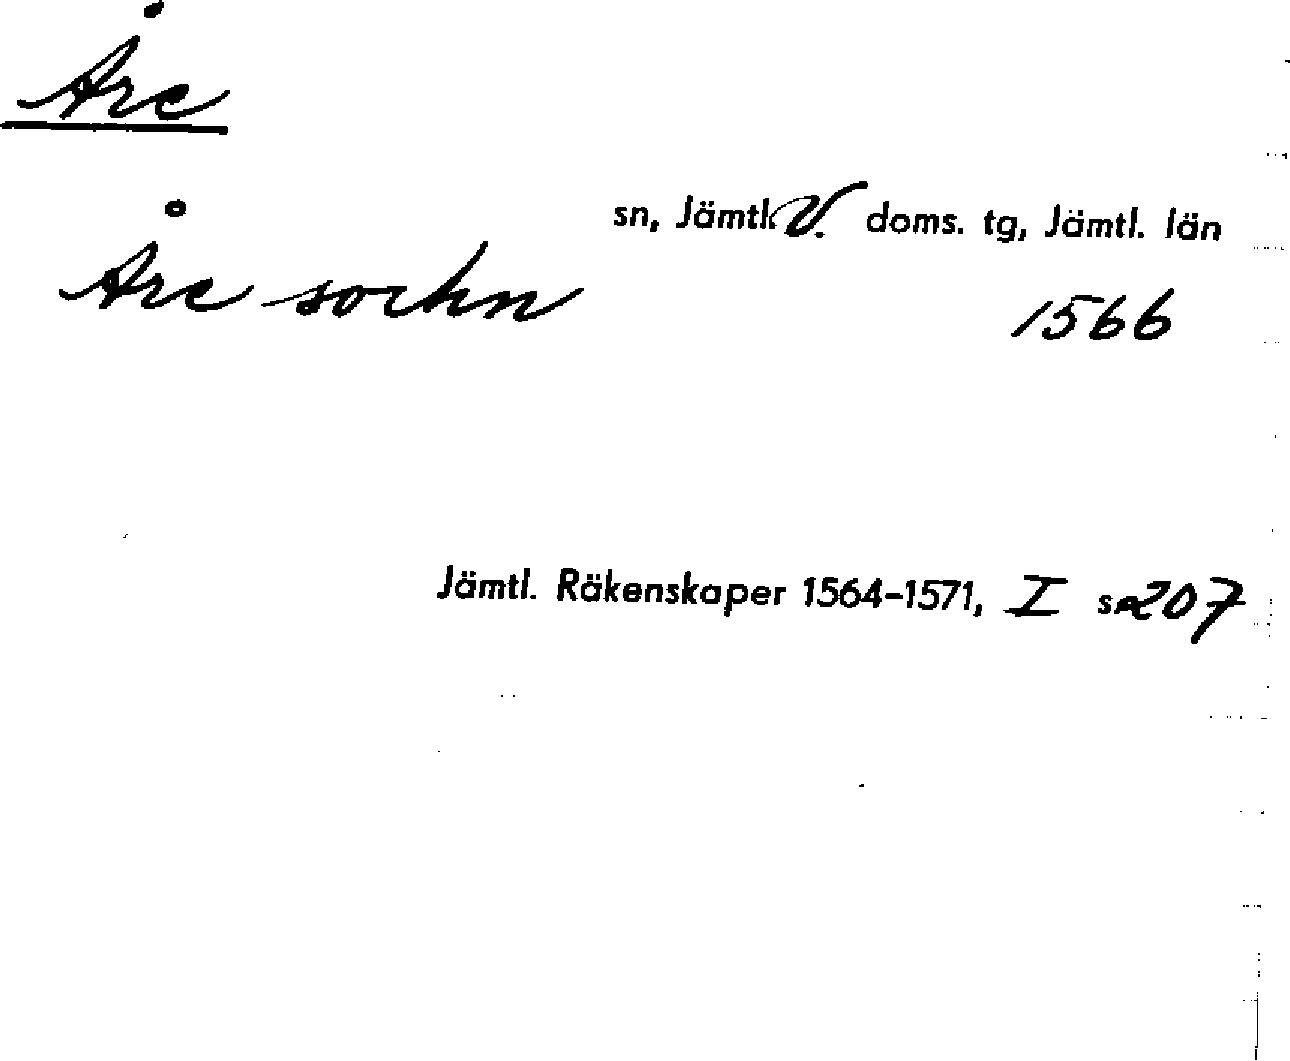 Åre
sn, Jämtl. V. doms. tg, Jämtl. län
Åre sochn 1566
Jämtl. Räkenskaper 1564-1571, I s. 207